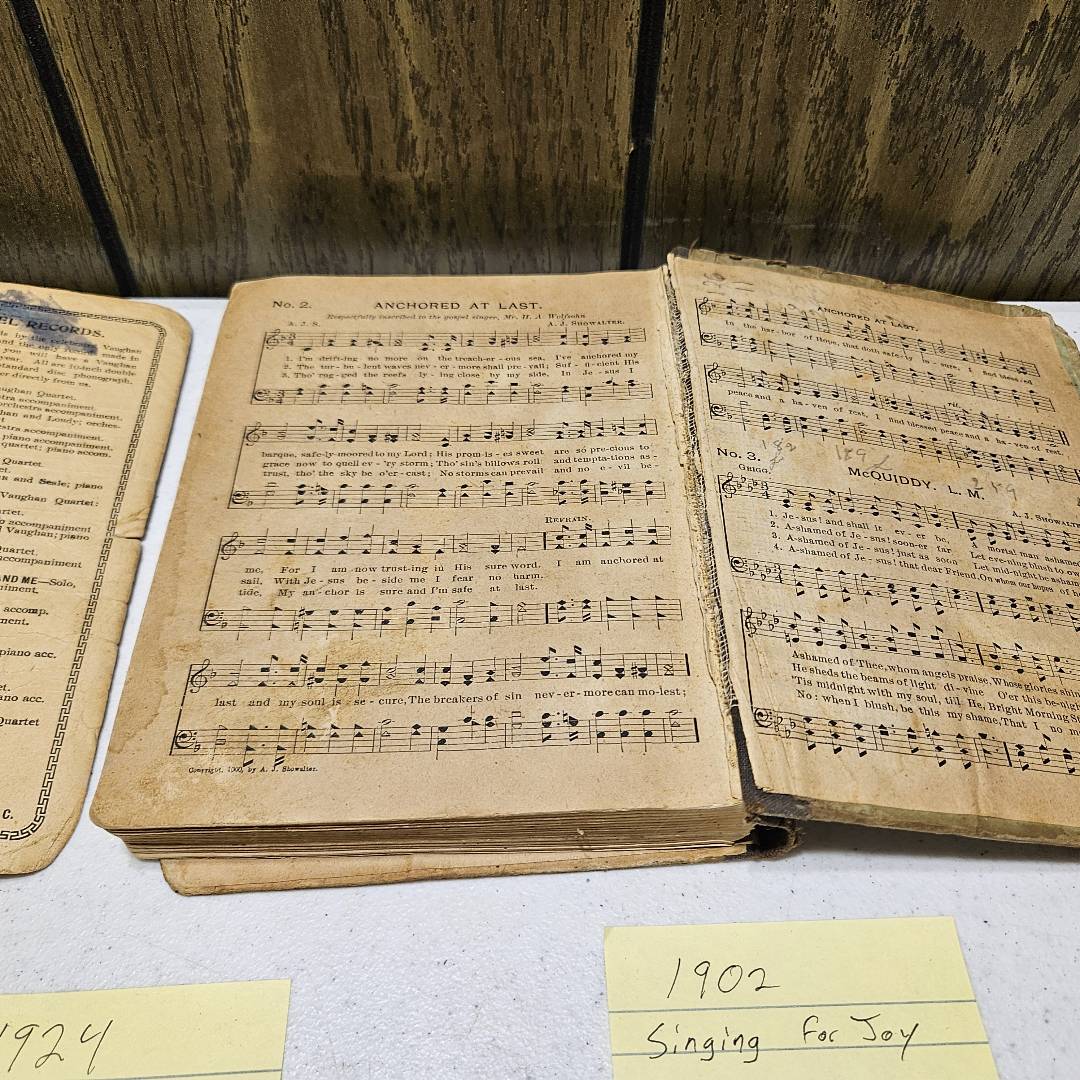 RECORDS.
made in
you will have a Vaughan
year. All are 10-inch double
standard disc phonograph.
directly from us.
Vaughan Quartet.
orchestra accompaniment.
accompaniment.
piano accompaniment.
quartet; piano accom.
Quartet
and Seale; piano
Vaughan Quartet:
accompaniment
Vaughan; piano
Quartet.
accompaniment
AND ME—Solo,
accomp.
piano acc.
ano acc.
Quartet
C.
No. 2. ANCHORED AT LAST.
Respectfully inscribed to the gospel singer, Mr. H. A. Wolfsohn
A. J. S. A. J. SHOWALTER.
1. I'm drift-ing no more on the treach-er-ous sea, I've anchored my
2. The tur-bu-lent waves nev-er-more shall pre-vail; Suf-fi-cient His
3. Tho' rug-ged the reefs ly-ing close by my side, In Je-sus I
barque, safe-ly-moored to my Lord; His prom-is-es sweet are so pre-cious to
grace now to quell ev-'ry storm; Tho' sin's billows roll and tempta-tions as-
trust, tho' the sky be o'er-cast; No storms can prevail and no e-vil be-
REFRAIN.
me, For I am now trust-ing in His sure word. I am anchored at
sail, With Je-sus be-side me I fear no harm.
tide, My an-chor is sure and I'm safe at last.
last and my soul is se-cure, The breakers of sin nev-er-more can mo-lest;
Copyright, 1900, by A. J. Showalter.
ANCHORED AT LAST.
In the har-bor of Hope, that doth safe-ly in-sure, I find bless-ed
rit.
peace and a ha-ven of rest, I find blessed peace and a ha-ven of rest.
No. 3.
McQUIDDY, L. M.
GRIGG. A. J. SHOWALTER
1. Je-sus! and shall it ev-er be, mortal man ashamed
2. A-shamed of Je-sus! soon-er far Let eve-ning blush to ow
3. A-shamed of Je-sus! just as soon Let mid-night be asham
4. A-shamed of Je-sus! that dear Friend, On whom our hopes of h
Ashamed of Thee, whom angels praise, Whose glories shin
He sheds the beams of light di-vine O'er this be-nigh
'Tis midnight with my soul, till He, Bright Morning St
No: when I blush, be this my shame, That I no m
1924
1902
Singing for Joy